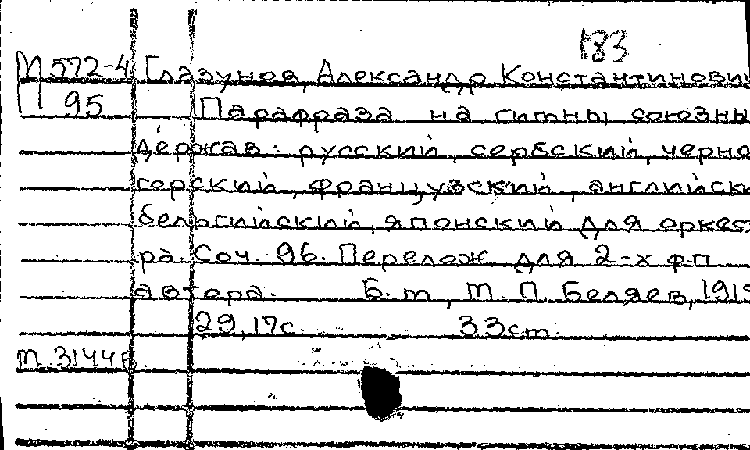 183
П 572-4 Глазунов, Александр Константинович
П 95 Парафраза на гимны союзны
держав: русский, сербский, черно
горский, французский, английски
бельгийский, японский для оркест
ра. Соч. 96. Перелож. для 2-х ф.п.
автора. Б. м., М. П. Беляев, 1915
29, 17с. 33см.